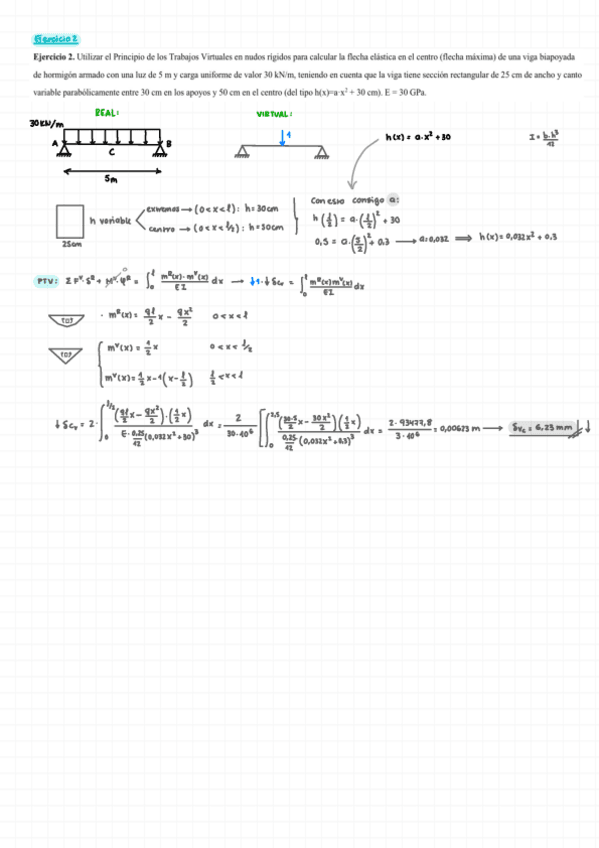 Ejercicio 2
Ejercicio 2. Utilizar el Principio de los Trabajos Virtuales en nudos rígidos para calcular la flecha elástica en el centro (flecha máxima) de una viga biapoyada
de hormigón armado con una luz de 5 m y carga uniforme de valor 30 kN/m, teniendo en cuenta que la viga tiene sección rectangular de 25 cm de ancho y canto
variable parabólicamente entre 30 cm en los apoyos y 50 cm en el centro (del tipo h(x)=a·x² + 30 cm). E = 30 GPa.
REAL: VIRTUAL:
30KN/m
A B
C
5m
1
h(x) = a·x² + 30
I = b·h³/12
h variable
extremos → (0<x<l): h=30cm
centro → (0<x<l/2): h=50cm
25cm
Con esto consigo a:
h(l/2) = a·(l/2)² + 30
0,5 = a·(5/2)² + 0.3 → a=0,032 ⟹ h(x)=0,032x² + 0,3
PTV: ΣFᵛ·δᴿ + Mᵛ·φᴿ = ∫₀ˡ mᴿ(x)·mᵛ(x)/EI dx → ↓1·↓δcᵥ = ∫₀ˡ mᴿ(x)mᵛ(x)/EI dx
· mᴿ(x) = ql/2 x − qx²/2 0<x<l
mᵛ(x) = 1/2 x 0<x<l/2
mᵛ(x) = 1/2 x−1(x−l/2) l/2<x<l
↓δcᵥ = 2·∫₀^(l/2) (ql/2 x − qx²/2)·(1/2 x) / E·0,25/12 (0,032x²+30)³ dx = 2/30·10⁶ [∫₀^2,5 (30·5/2 x − 30x²/2)(1/2 x) / 0,25/12 (0,032x²+0.3)³ dx = 2·93477,8/3·10⁶ = 0,00623 m → δᵥc = 6,23 mm ↓